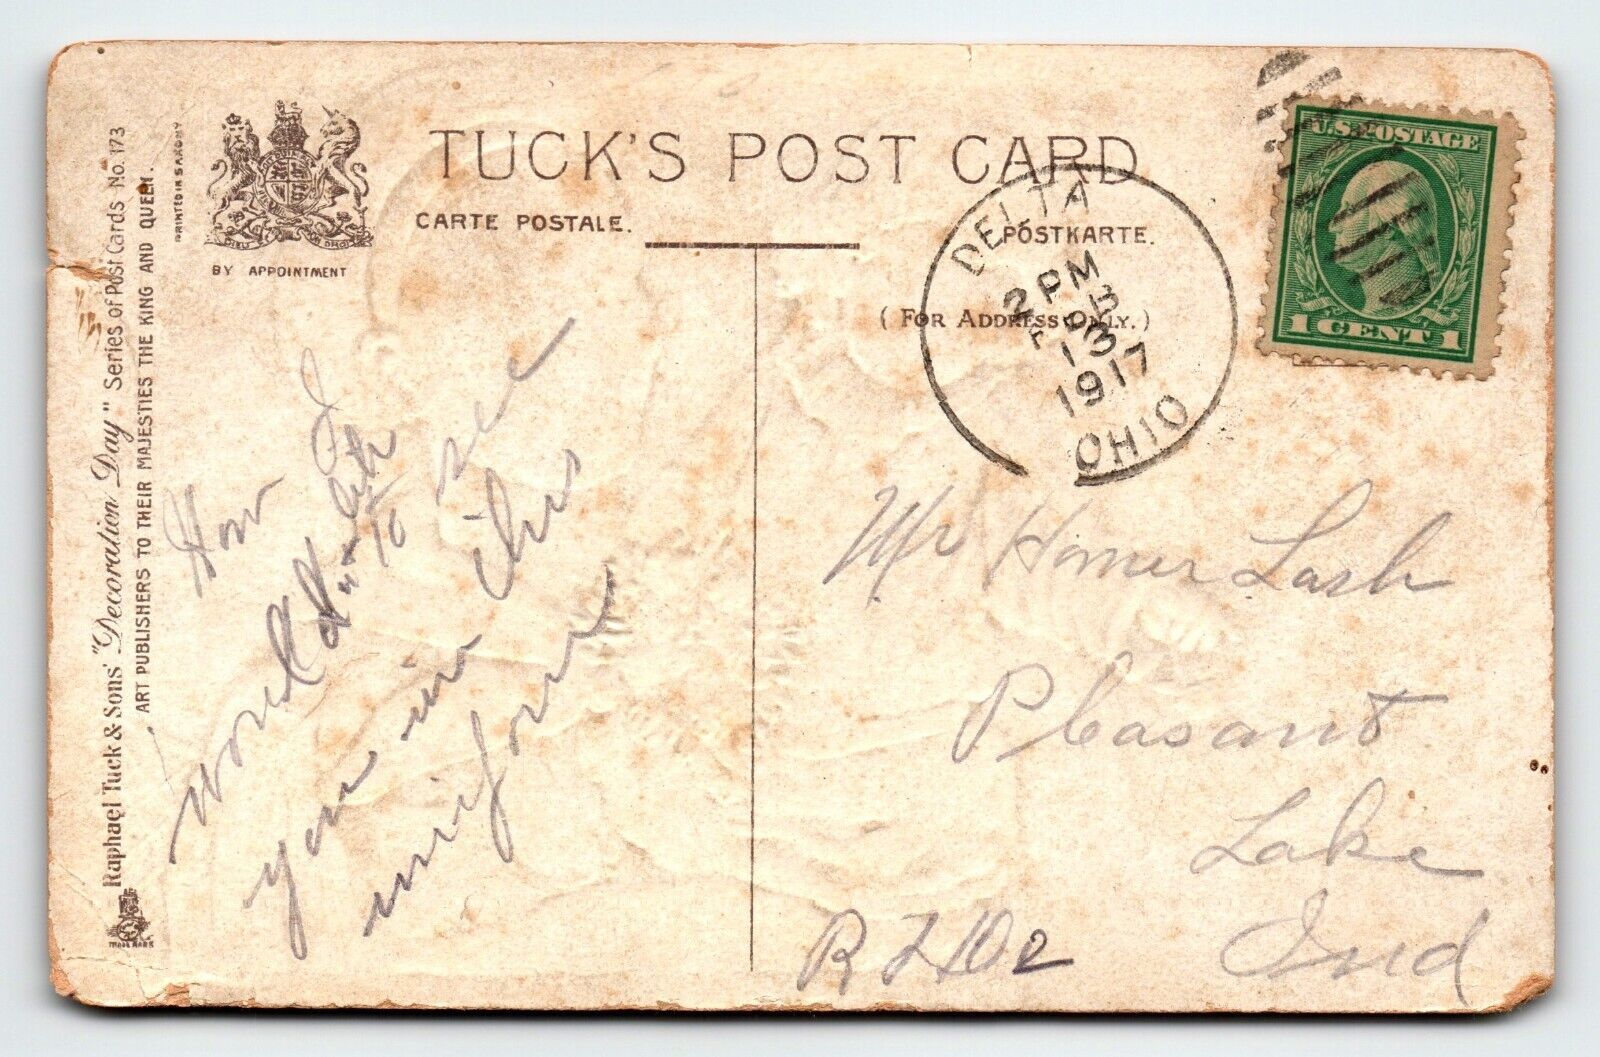 Raphael Tuck & Sons' "Decoration Day" Series of Post Cards No. 173
ART PUBLISHERS TO THEIR MAJESTIES THE KING AND QUEEN.
PRINTED IN SAXONY
TRADE MARK
BY APPOINTMENT
TUCK'S POST CARD
CARTE POSTALE.
POSTKARTE.
(FOR ADDRESS ONLY.)
DELTA
2 PM
FEB
13
1917
OHIO
U.S. POSTAGE
1 CENT 1
How I
would like
to see
you in this
uniform
Mr Homer Lash
Pleasant
Lake
Ind
R F D 2